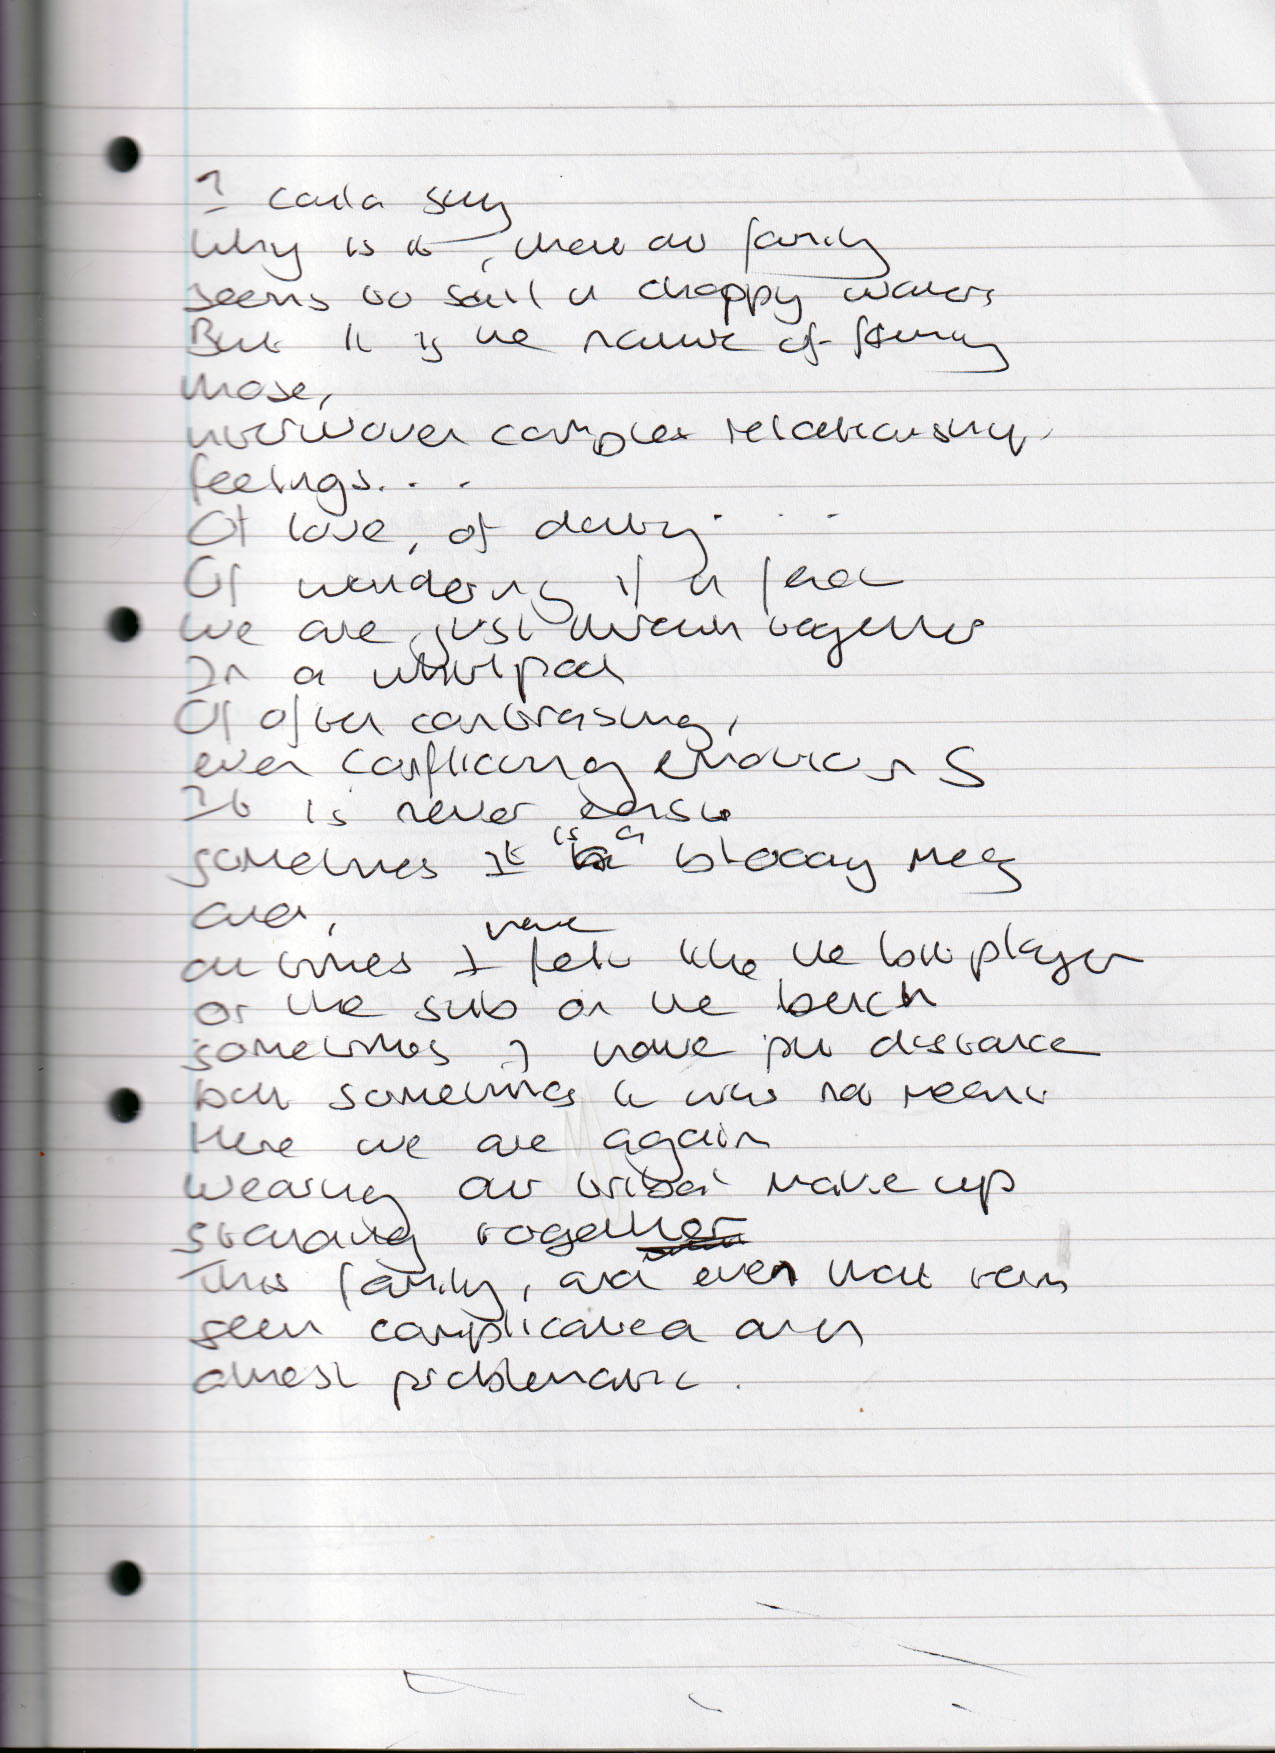 I could say
Why is it, that our family
seems to sail in choppy waters
But it is the nature of family
those,
interwoven complex relationships
feelings...
Of love, of duty...
Of wondering if in fact
we are just thrown together
In a whirlpool
Of often contrasting,
even conflicting emotions
It is never easy
sometimes It "is a" bloody
and,
at times I have felt like the bit player
or the sub on the bench
sometimes I have put distance
but sometimes it was not meant
Here we are again
Wearing our tribal make up
standing together
This family, and even that term
seem complicated and
almost problematic.